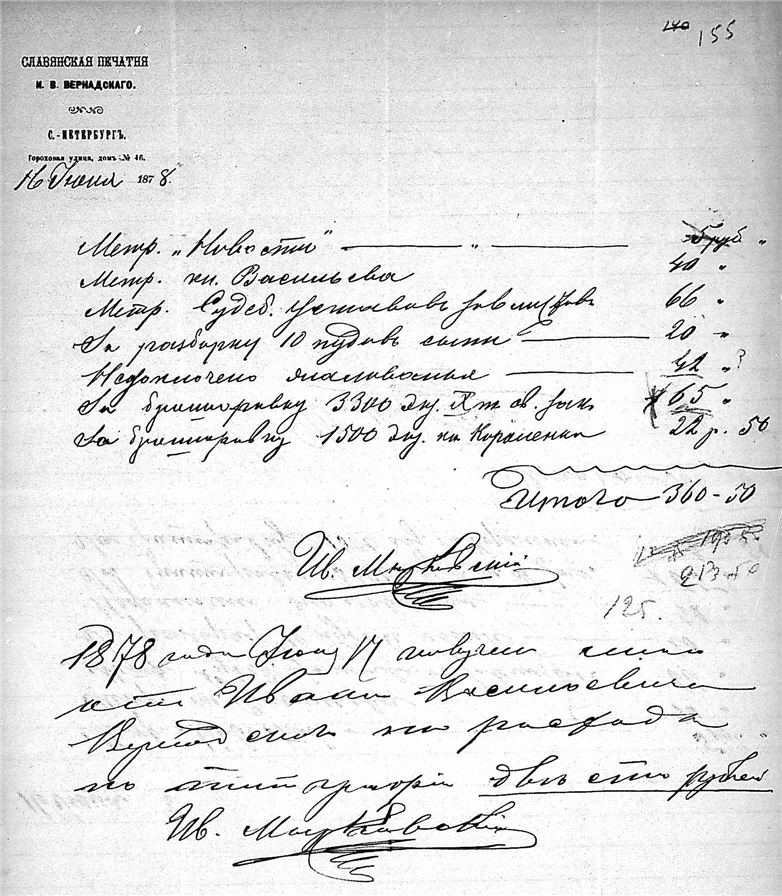 140 155
СЛАВЯНСКАЯ ПЕЧАТНЯ
И. В. ВЕРНАДСКАГО.
С.-ПЕТЕРБУРГЪ.
Гороховая улица, домъ № 46.
16 Іюня 1878.
Метр. „Новости“ — „ — 5 руб „
Метр. кн. Васильева 40 „
Метр. Судеб. Уставовъ 66 „
За разборку 10 пудовъ 20 „
Недоплочено жалованья — 42 „?
За брошюровку 3300 экз. 65 „
За брошюровку 1500 экз. кн Короленки 22 р. 50
Итого 360-50
195 50
213-50
125.
Ив.
1878 года Іюня 17 получено мною
отъ Ивана Васильевича
Вернадскаго на расхода
по типографіи двѣсти рублей
Ив.